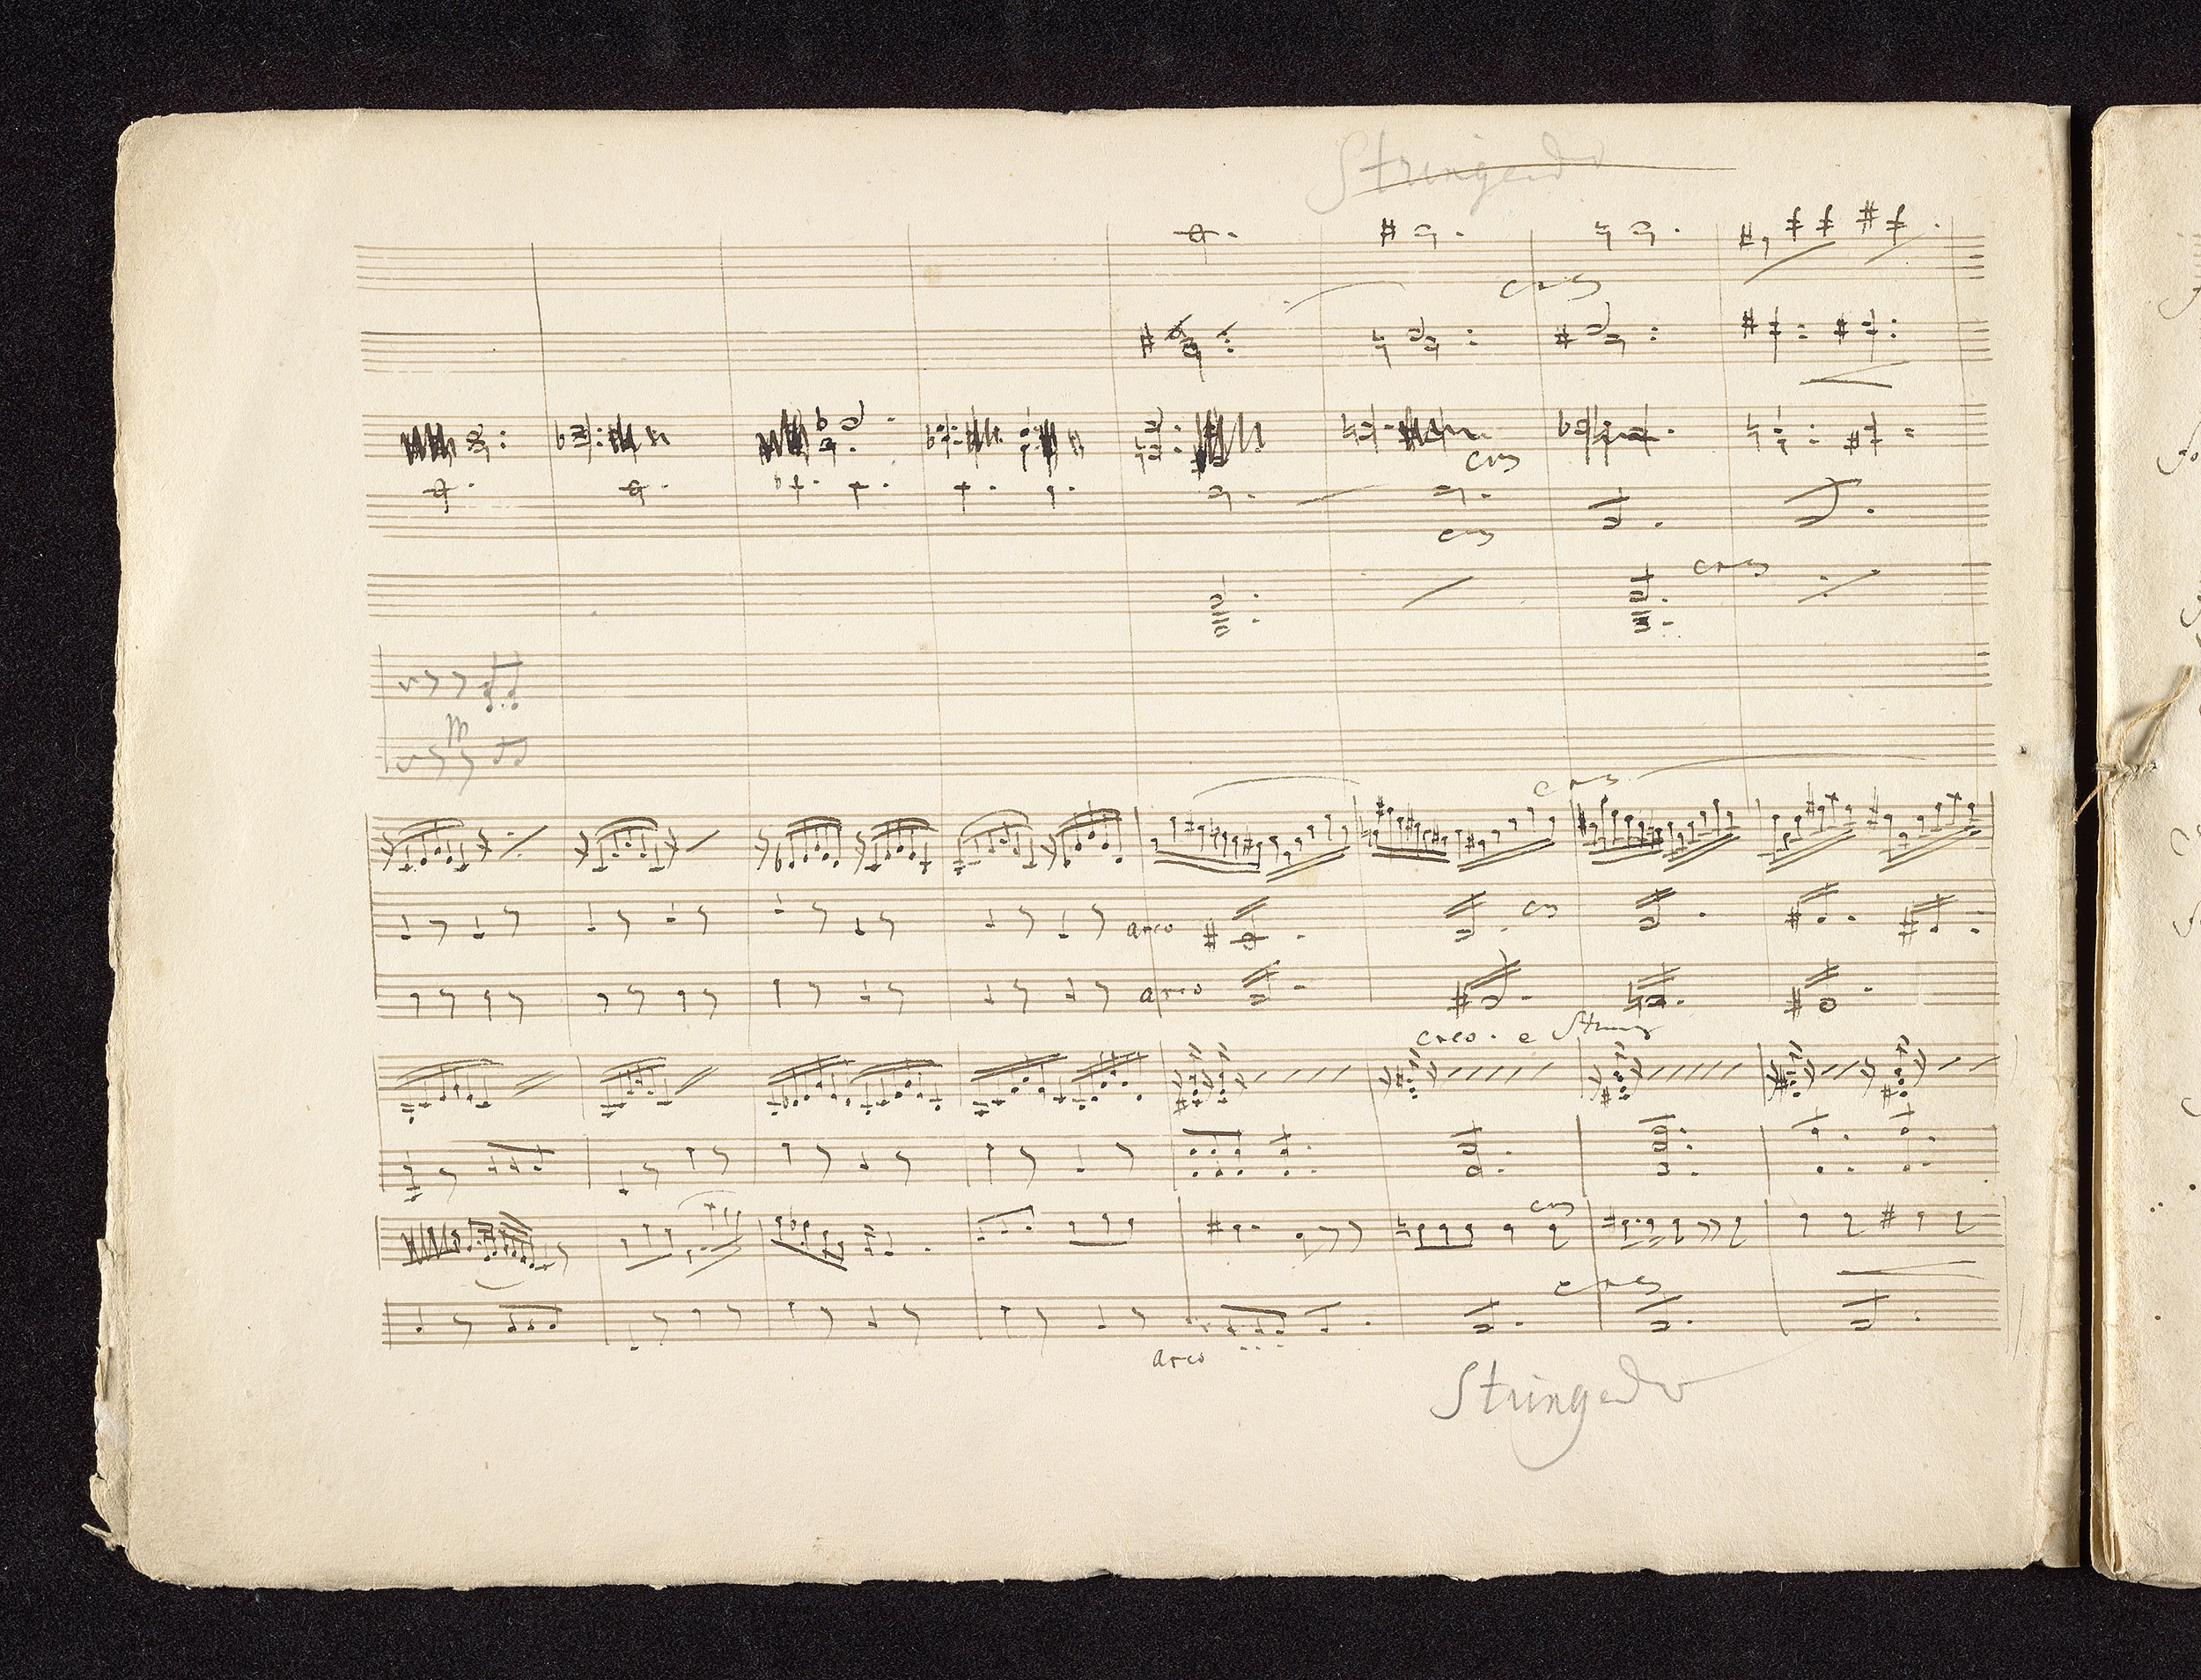 Stringendo
cres
cres
cres
cres
m
cres
arco
cres
arco
cres. e String
cres
cres
arco
Stringendo